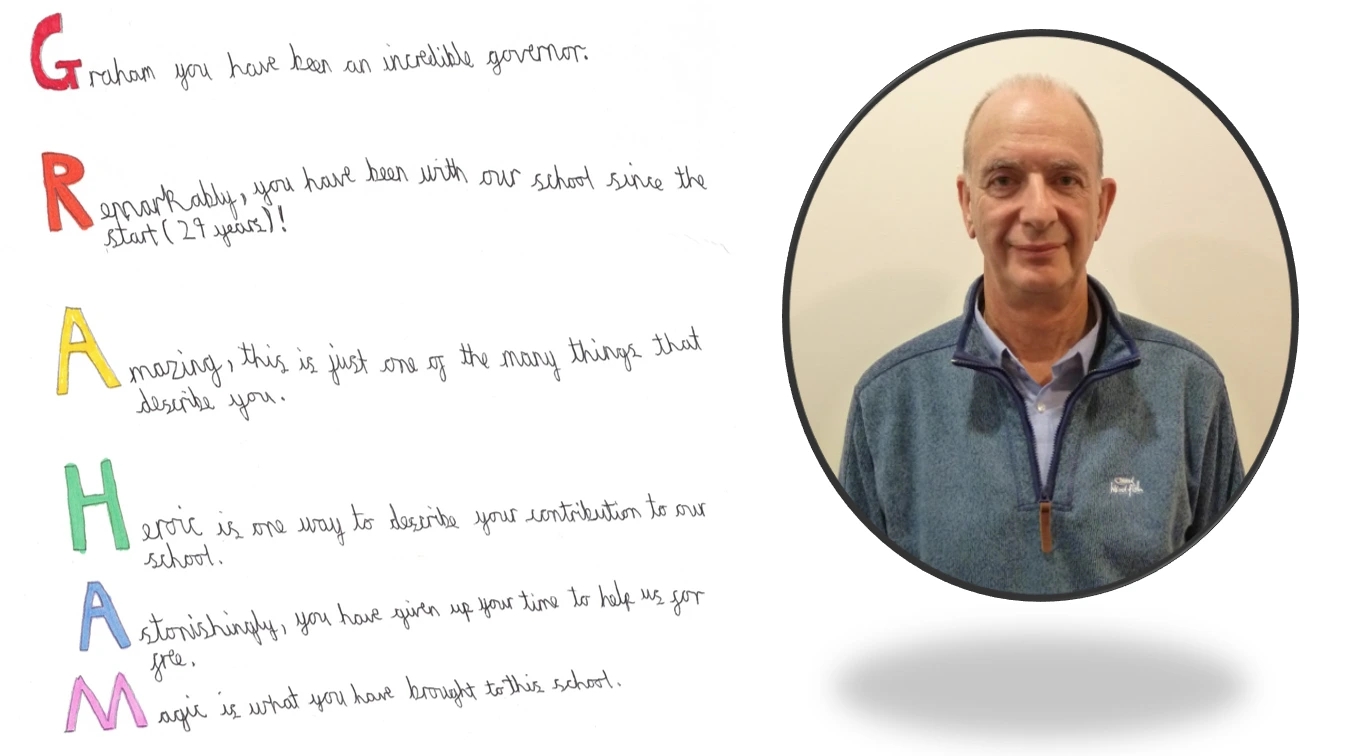 Graham you have been an incredible governor.
Remarkably, you have been with our school since the
start (29 years)!
Amazing, this is just one of the many things that
describe you.
Heroic is one way to describe your contribution to our
school.
Astonishingly, you have given up your time to help us for
free.
Magic is what you have brought to this school.